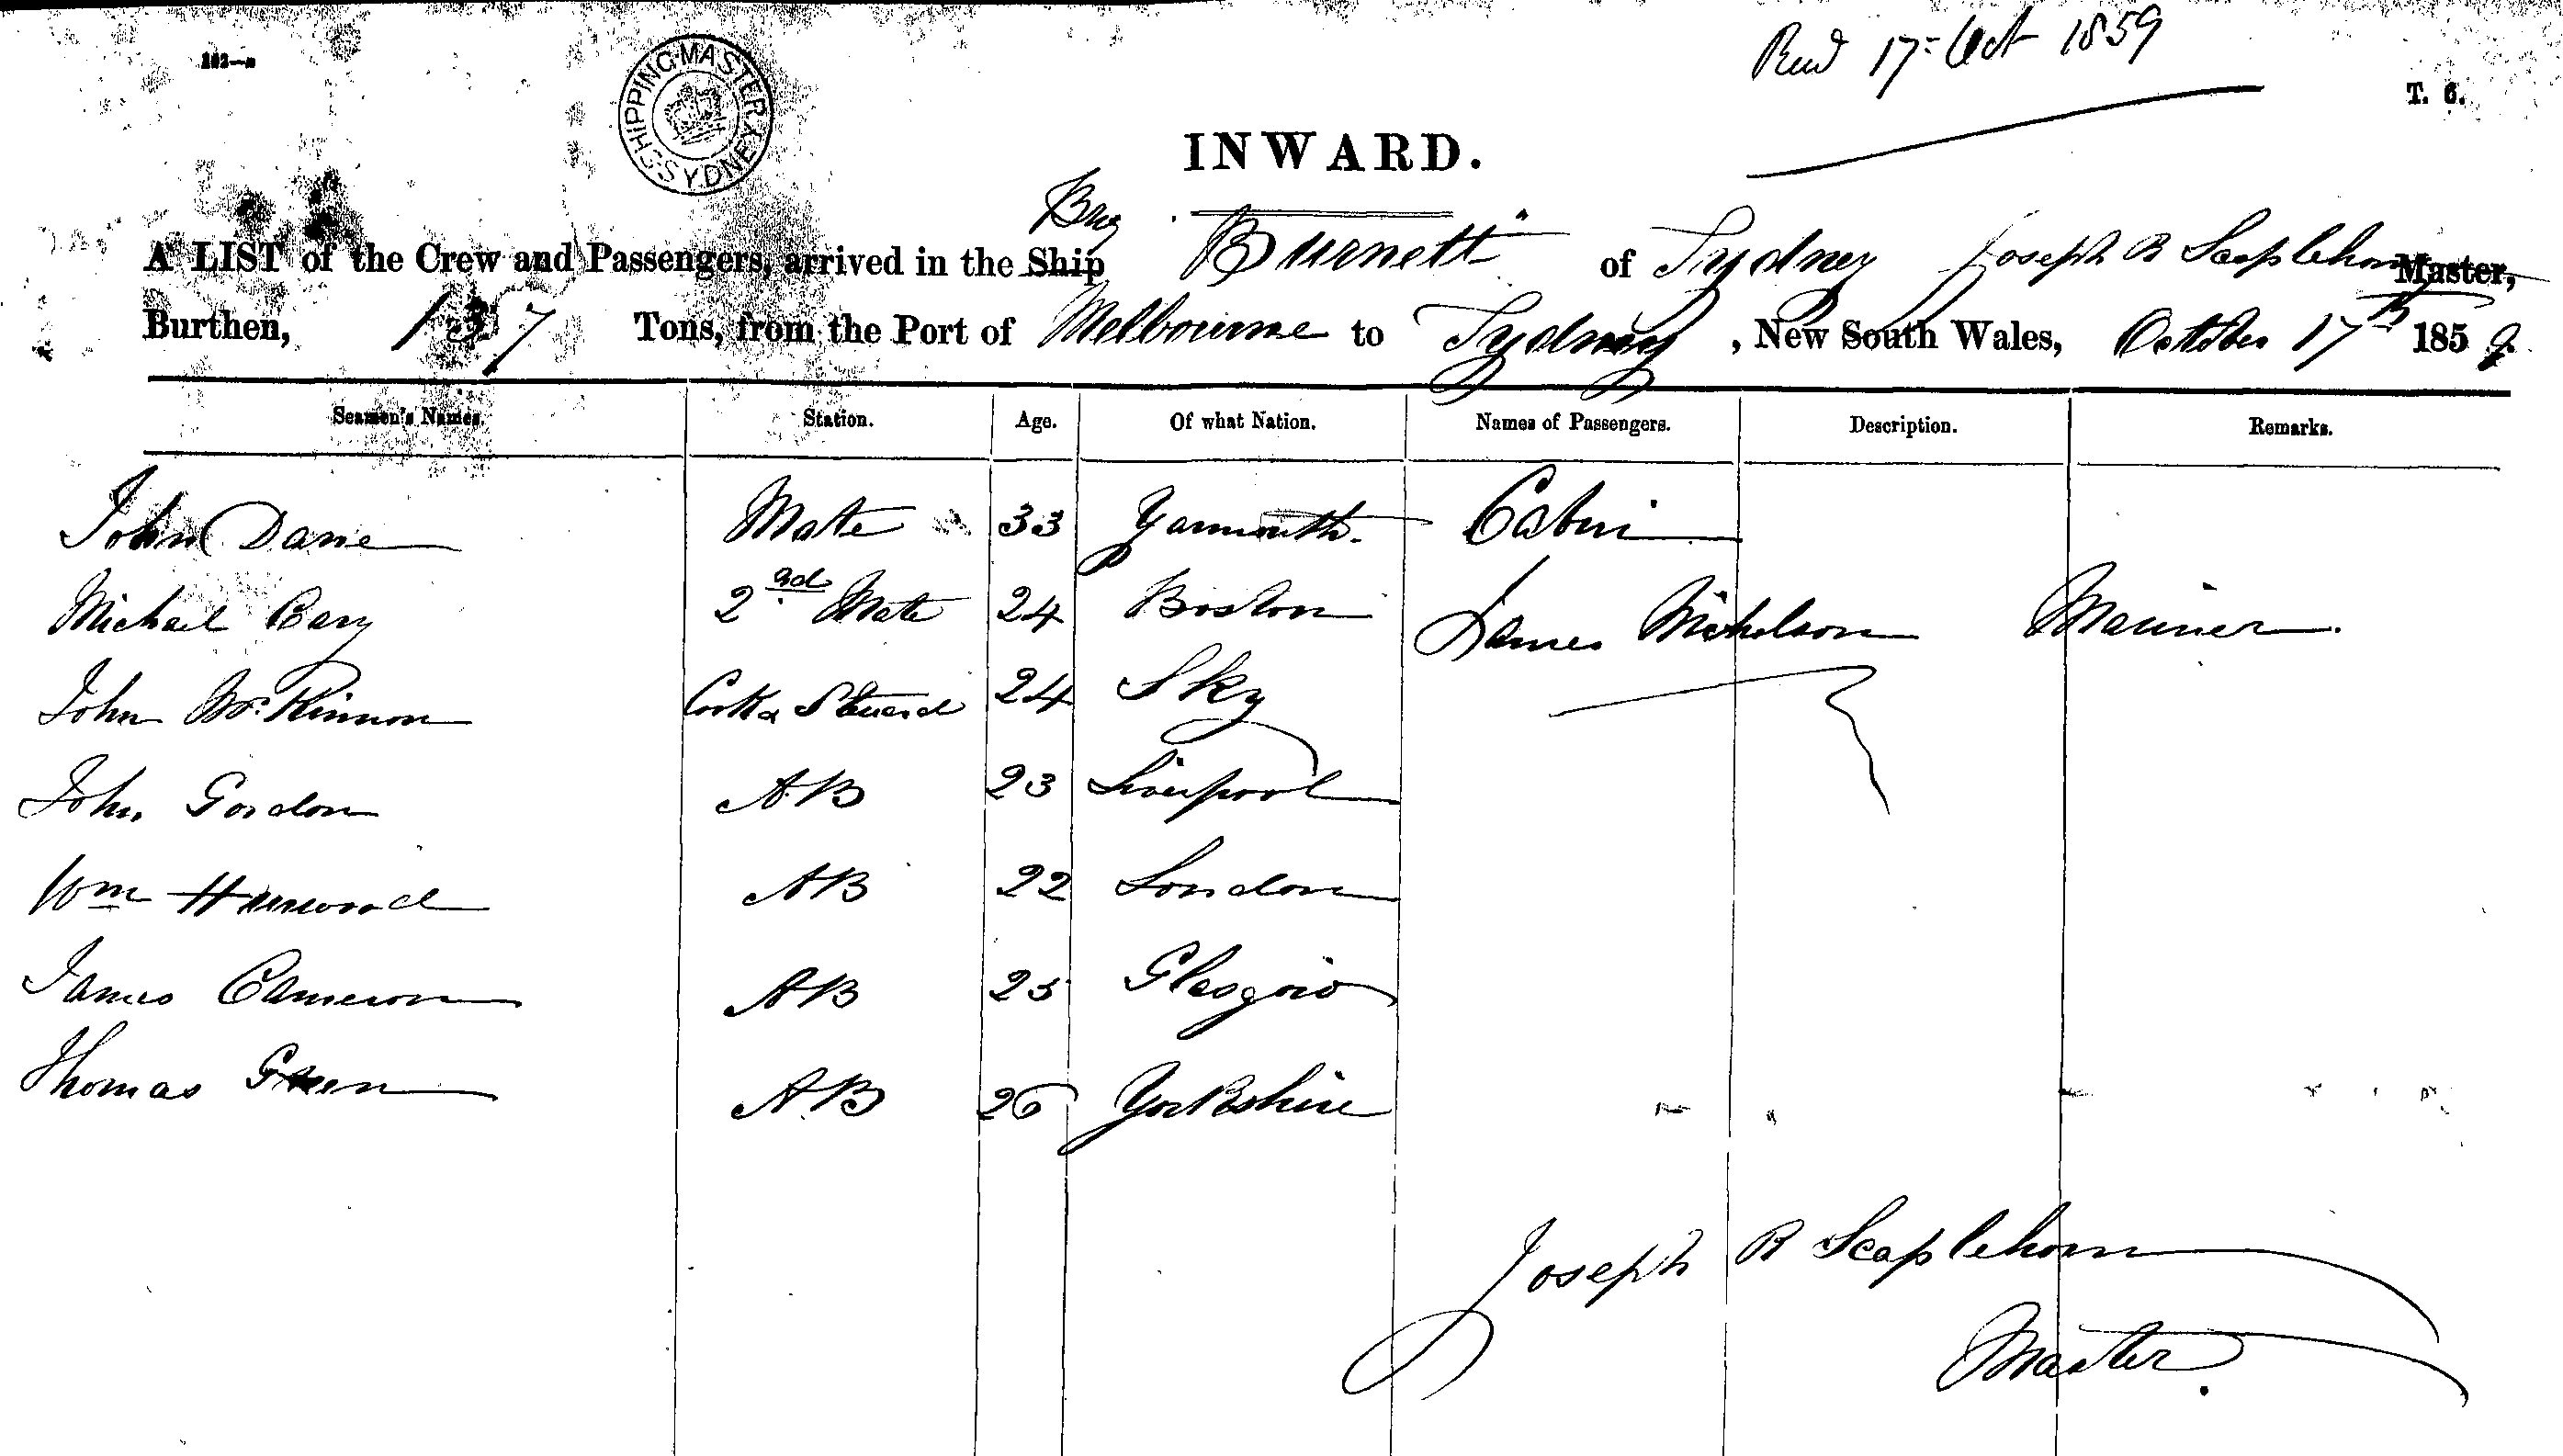 Recd 17 = Oct 1859
T. 6.
SHIPPING MASTER SYDNEY
INWARD.
Brig
A LIST of the Crew and Passengers, arrived in the Ship "Burnett" of Sydney Joseph R Scaplehorn Master,
Burthen, 137 Tons, from the Port of Melbourne to Sydney, New South Wales, October 17th 1859.
Seamen's Names. Station. Age. Of what Nation. Names of Passengers. Description. Remarks.
John Dane Mate 33 Yarmouth. Cabin
Michael Cary 2nd Mate 24 Boston James Nicholson Mariner.
John McKinnon Cook & Steward 24 Sky
John Gordon AB 23 Liverpool
Wm AB 22 London
James Cameron AB 25 Glasgow
Thomas Green AB 26 Yorkshire
Joseph R Scaplehorn
Master.